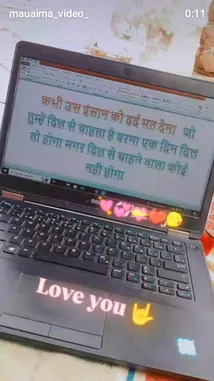 mauaima_video_
0:11
कभी उस इंसान को दर्द मत देना जो
तुम्हे दिल से चाहता है वरना एक दिन दिल
तो होगा मगर दिल से चाहने वाला कोई
नहीं होगा
Love you